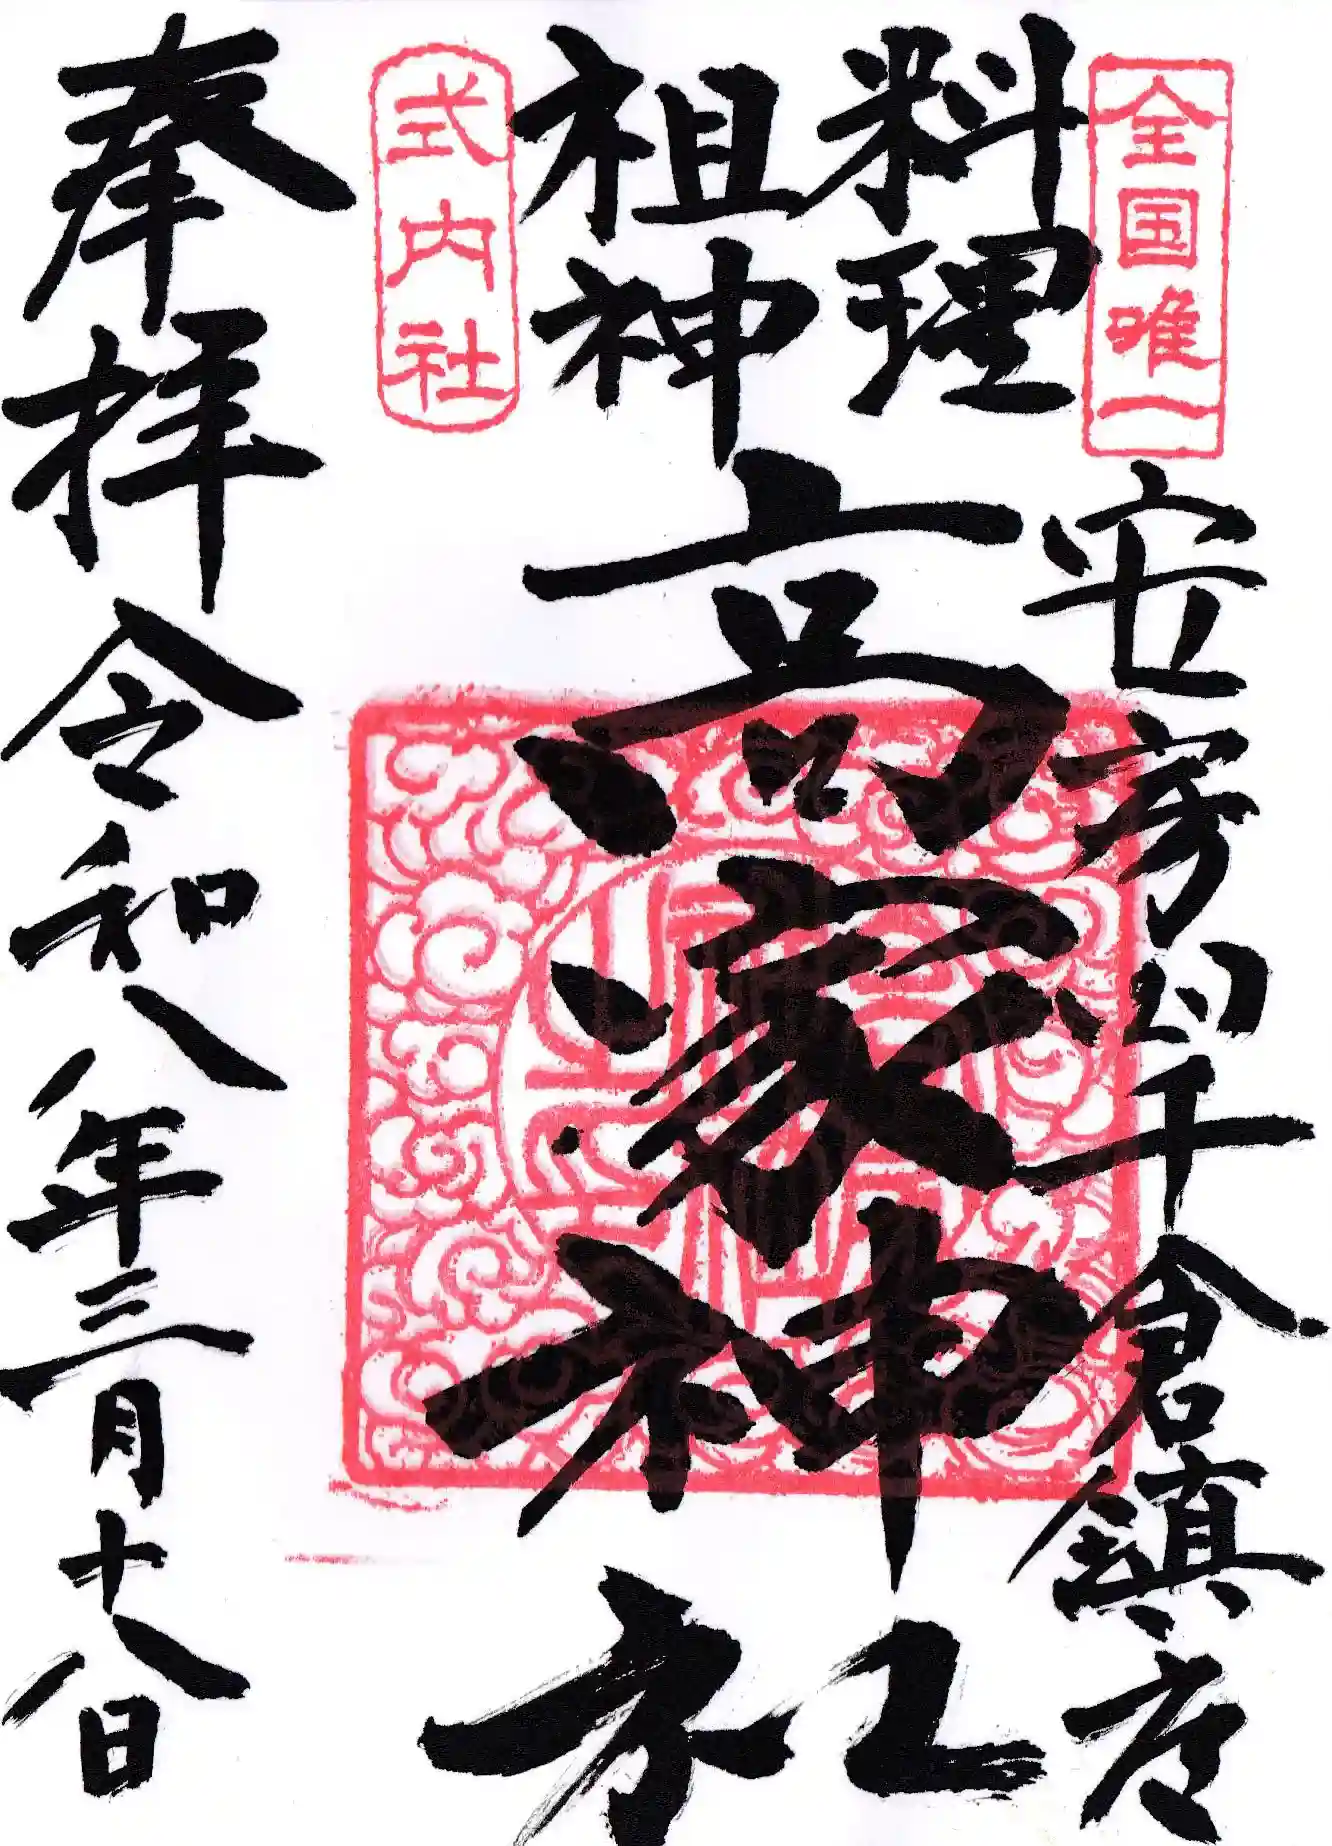 全国唯一
安房州千倉鎮座
料理
祖神
高家神社
式内社
奉拝
令和八年三月十八日